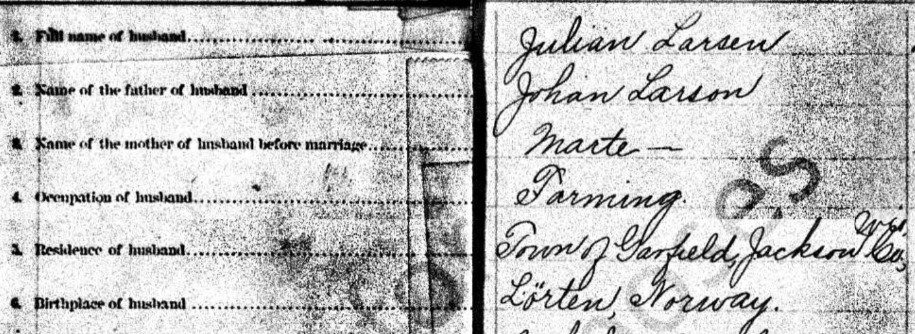 1. Full name of husband Julian Larsen
2. Name of the father of husband Johan Larson
3. Name of the mother of husband before marriage Marte —
4. Occupation of husband Farming.
5. Residence of husband Town of Garfield, Jackson Co, Wis,
6. Birthplace of husband Lörten, Norway.